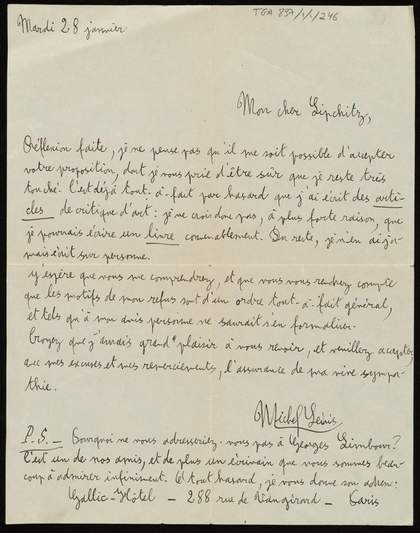 TGA 897/1/1/246
Mardi 28 janvier
Mon cher Lipchitz,
Réflexion faite, je ne pense pas qu'il me soit possible d'accepter
votre proposition, dont je vous prie d'être sûr que je reste très
touché. C'est déjà tout-à-fait par hasard que j'ai écrit des arti-
cles de critique d'art : je ne crois donc pas, à plus forte raison, que
je pourrais écrire un livre convenablement. Du reste, je n'en ai ja-
mais écrit sur personne.
J'espère que vous me comprendrez, et que vous vous rendrez compte
que les motifs de mon refus sont d'un ordre tout-à-fait général,
et tels qu'à mon avis personne ne saurait s'en formaliser.
Croyez que j'aurais grand plaisir à vous revoir, et veuillez accepter,
avec mes excuses et mes remerciements, l'assurance de ma vive sympa-
thie.
Michel Leiris
P.S. – Pourquoi ne vous adresseriez-vous pas à Georges Limbour ?
C'est un de nos amis, et de plus un écrivain que nous sommes beau-
coup à admirer infiniment. A tout hasard, je vous donne son adresse :
Gallic-Hôtel – 288 rue de Vaugirard – Paris